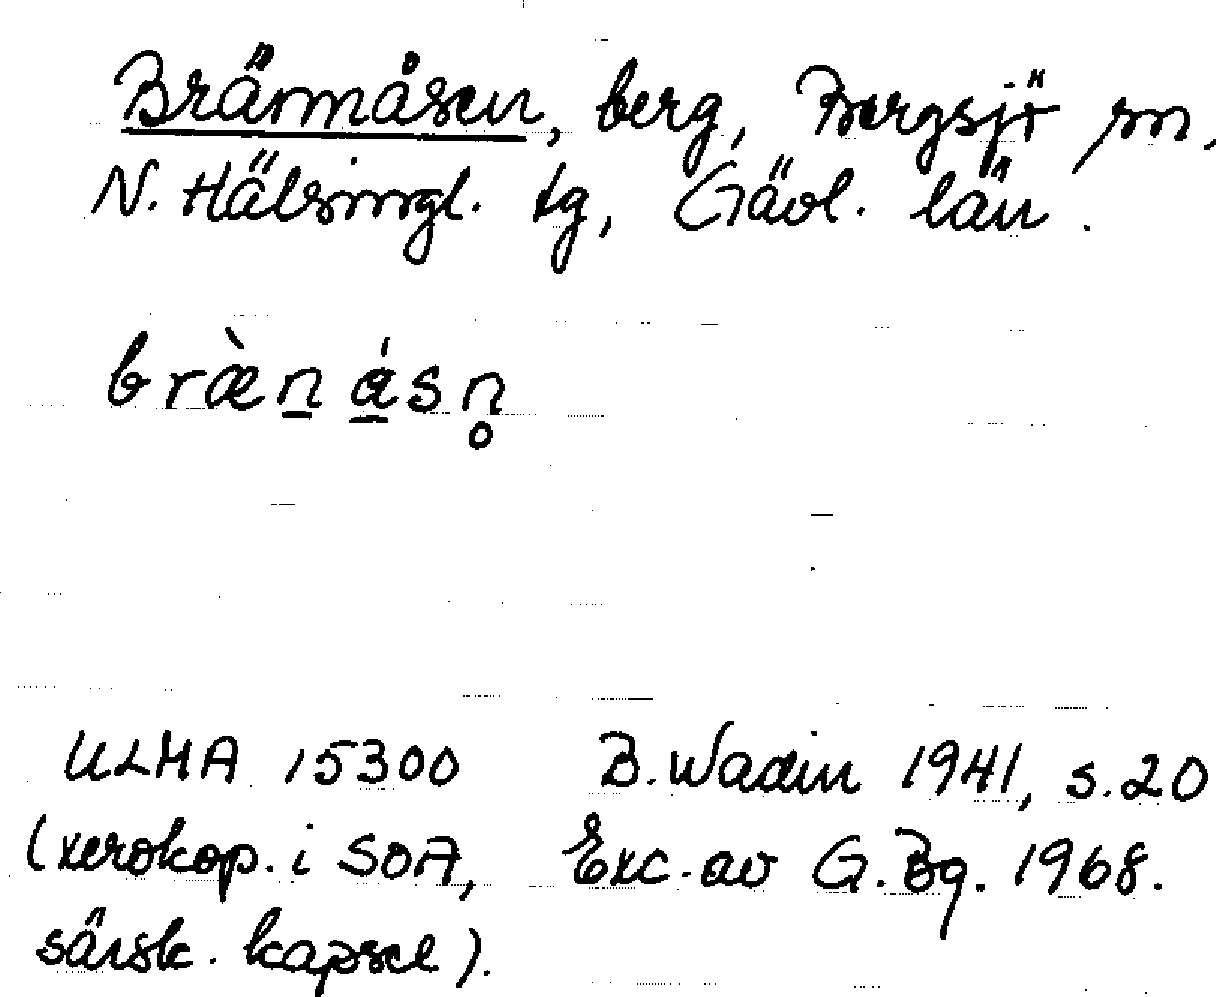 Brännåsen, berg, Bergsjö sn,
N. Hälsingl. tg, Gävl. län.
bræ̀n̲ á̲sn̥
ULMA 15300 B. Wadin 1941, s. 20
(xerokop. i SOA, Exc. av G. Bg. 1968.
särsk. kapsel).